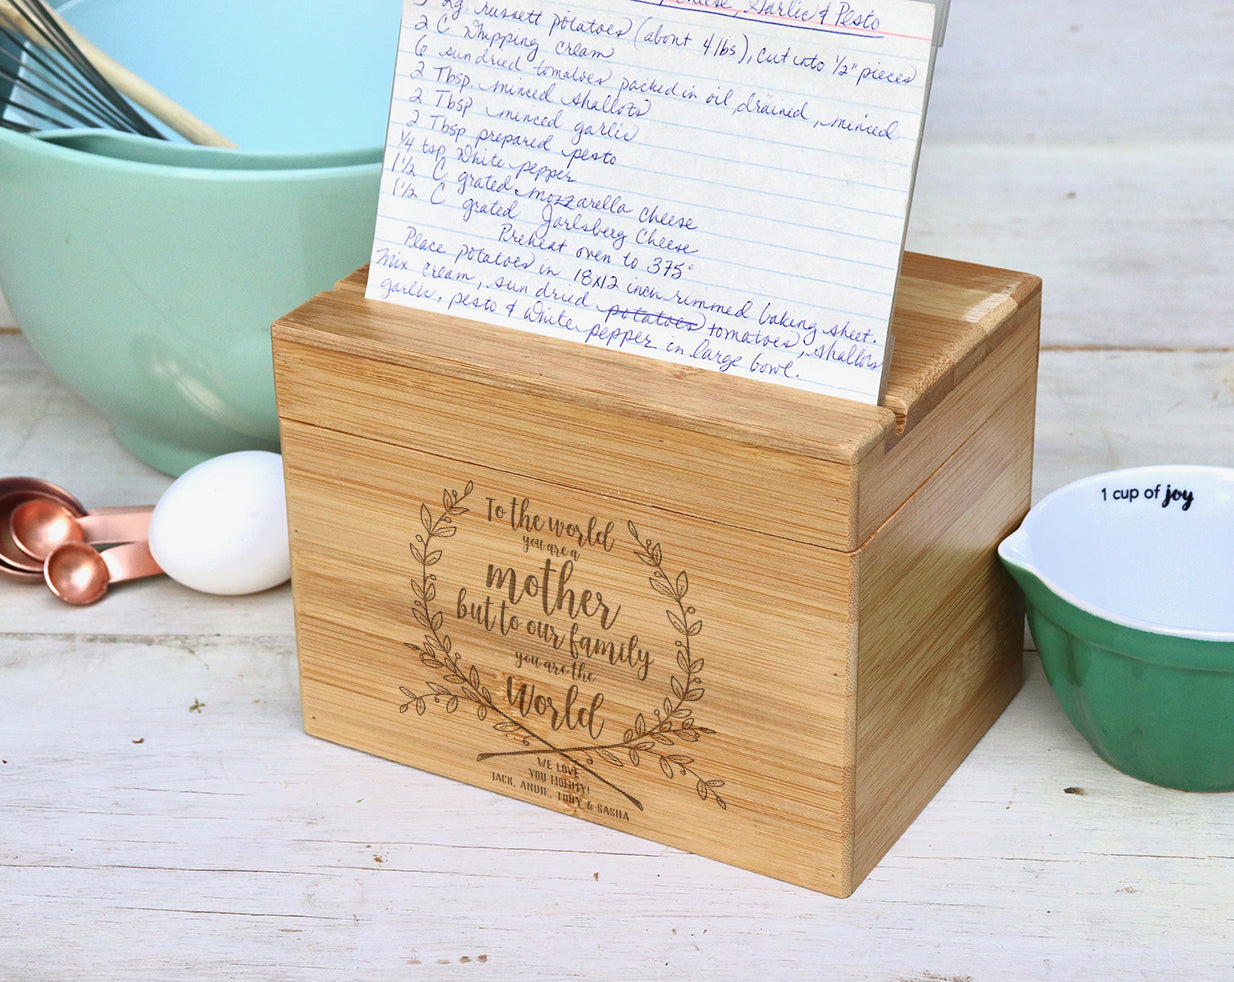 Cheese, Garlic & Pesto
lg. russett potatoes (about 4 lbs), cut into 1/2" pieces
2 C Whipping cream
6 sun dried tomatoes packed in oil, drained, minced
2 Tbsp. minced shallots
2 Tbsp minced garlic
2 Tbsp prepared pesto
1/4 tsp White pepper
1 1/2 C grated mozzarella cheese
1 1/2 C grated Jarlsberg Cheese
Preheat oven to 375°
Place potatoes in 18x12 inch rimmed baking sheet.
Mix cream, sun dried potatoes tomatoes, shallots
garlic, pesto & White pepper in large bowl.
To the world
you are a
mother
but to our family
you are the
World
WE LOVE
YOU MOMMY!
JACK, ANDIE, TOBY & SASHA
1 cup of joy